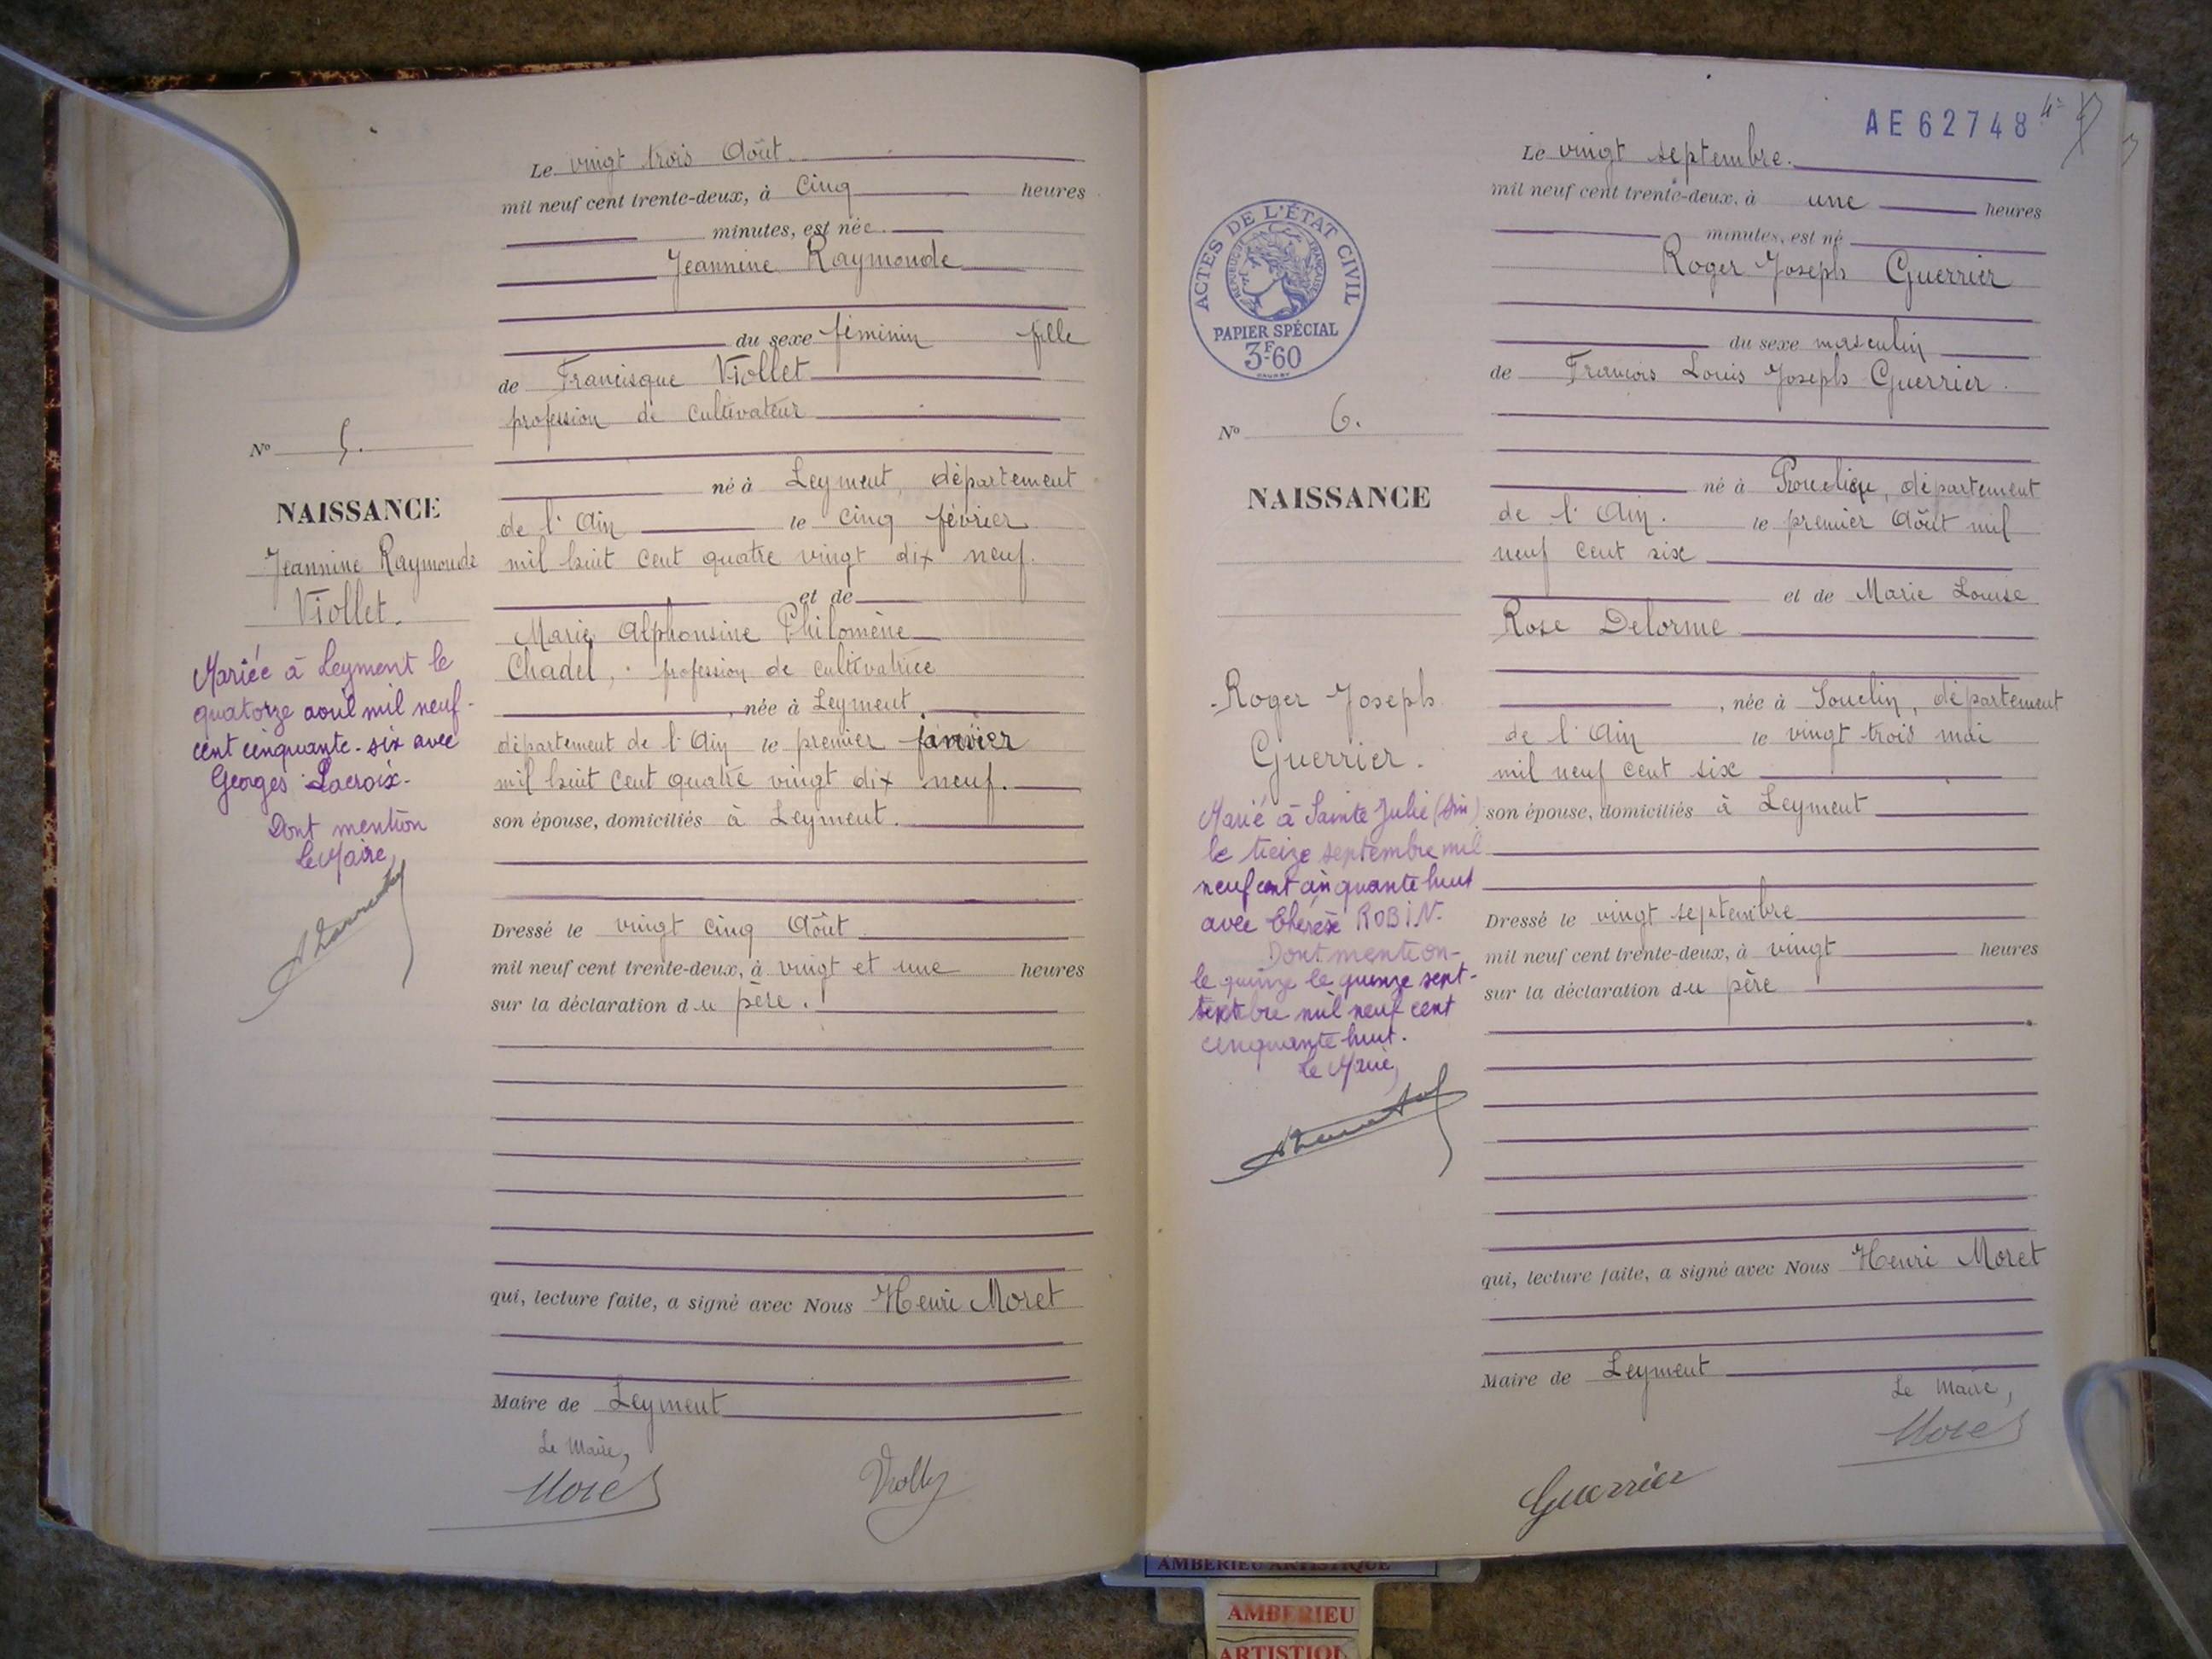 Le vingt trois Août
mil neuf cent trente-deux, à Cinq heures
minutes, est née
Jeannine Raymonde
du sexe féminin fille
de Francisque Viollet
profession de cultivateur
né à Leyment, département
de l'Ain le cinq février
mil huit cent quatre vingt dix neuf.
et de
Marie Alphonsine Philomène
Chadel, profession de cultivatrice
, née à Leyment
département de l'Ain le premier janvier
mil huit cent quatre vingt dix neuf.
son épouse, domiciliés à Leyment.
Dressé le vingt cinq Août
mil neuf cent trente-deux, à vingt et une heures
sur la déclaration du père.
qui, lecture faite, a signé avec Nous Henri Moret
Maire de Leyment
Le Maire,
Moret
N° 5.
NAISSANCE
Jeannine Raymonde
Viollet.
Mariée à Leyment le
quatorze aout mil neuf-
cent cinquante-six avec
Georges Lacroix-
Dont mention
Le Maire,
AE62748
Le vingt septembre.
mil neuf cent trente-deux, à une heures
minutes, est né
Roger Joseph Guerrier
du sexe masculin
de François Louis Joseph Guerrier.
né à département
de l'Ain. le premier Août mil
neuf cent six
et de Marie Louise
Rose Delorme
, née à Souclin, département
de l'Ain le vingt trois mai
mil neuf cent six
son épouse, domiciliés à Leyment
Dressé le vingt septembre
mil neuf cent trente-deux, à vingt heures
sur la déclaration du père
qui, lecture faite, a signé avec Nous Henri Moret
Maire de Leyment
Le Maire,
Moret
Guerrier
ACTES DE L'ÉTAT CIVIL
RÉPUBLIQUE FRANÇAISE
PAPIER SPÉCIAL
3F60
N° 6.
NAISSANCE
Roger Joseph
Guerrier.
Marié à Sainte Julie (Ain)
le treize septembre mil
neuf cent cinquante huit
avec Thérèse ROBIN-
Dont mention-
le quinze le quinze sept-
bre mil neuf cent
cinquante huit.
Le Maire,
AMBERIEU ARTISTIQUE
AMBERIEU
ARTISTIQU